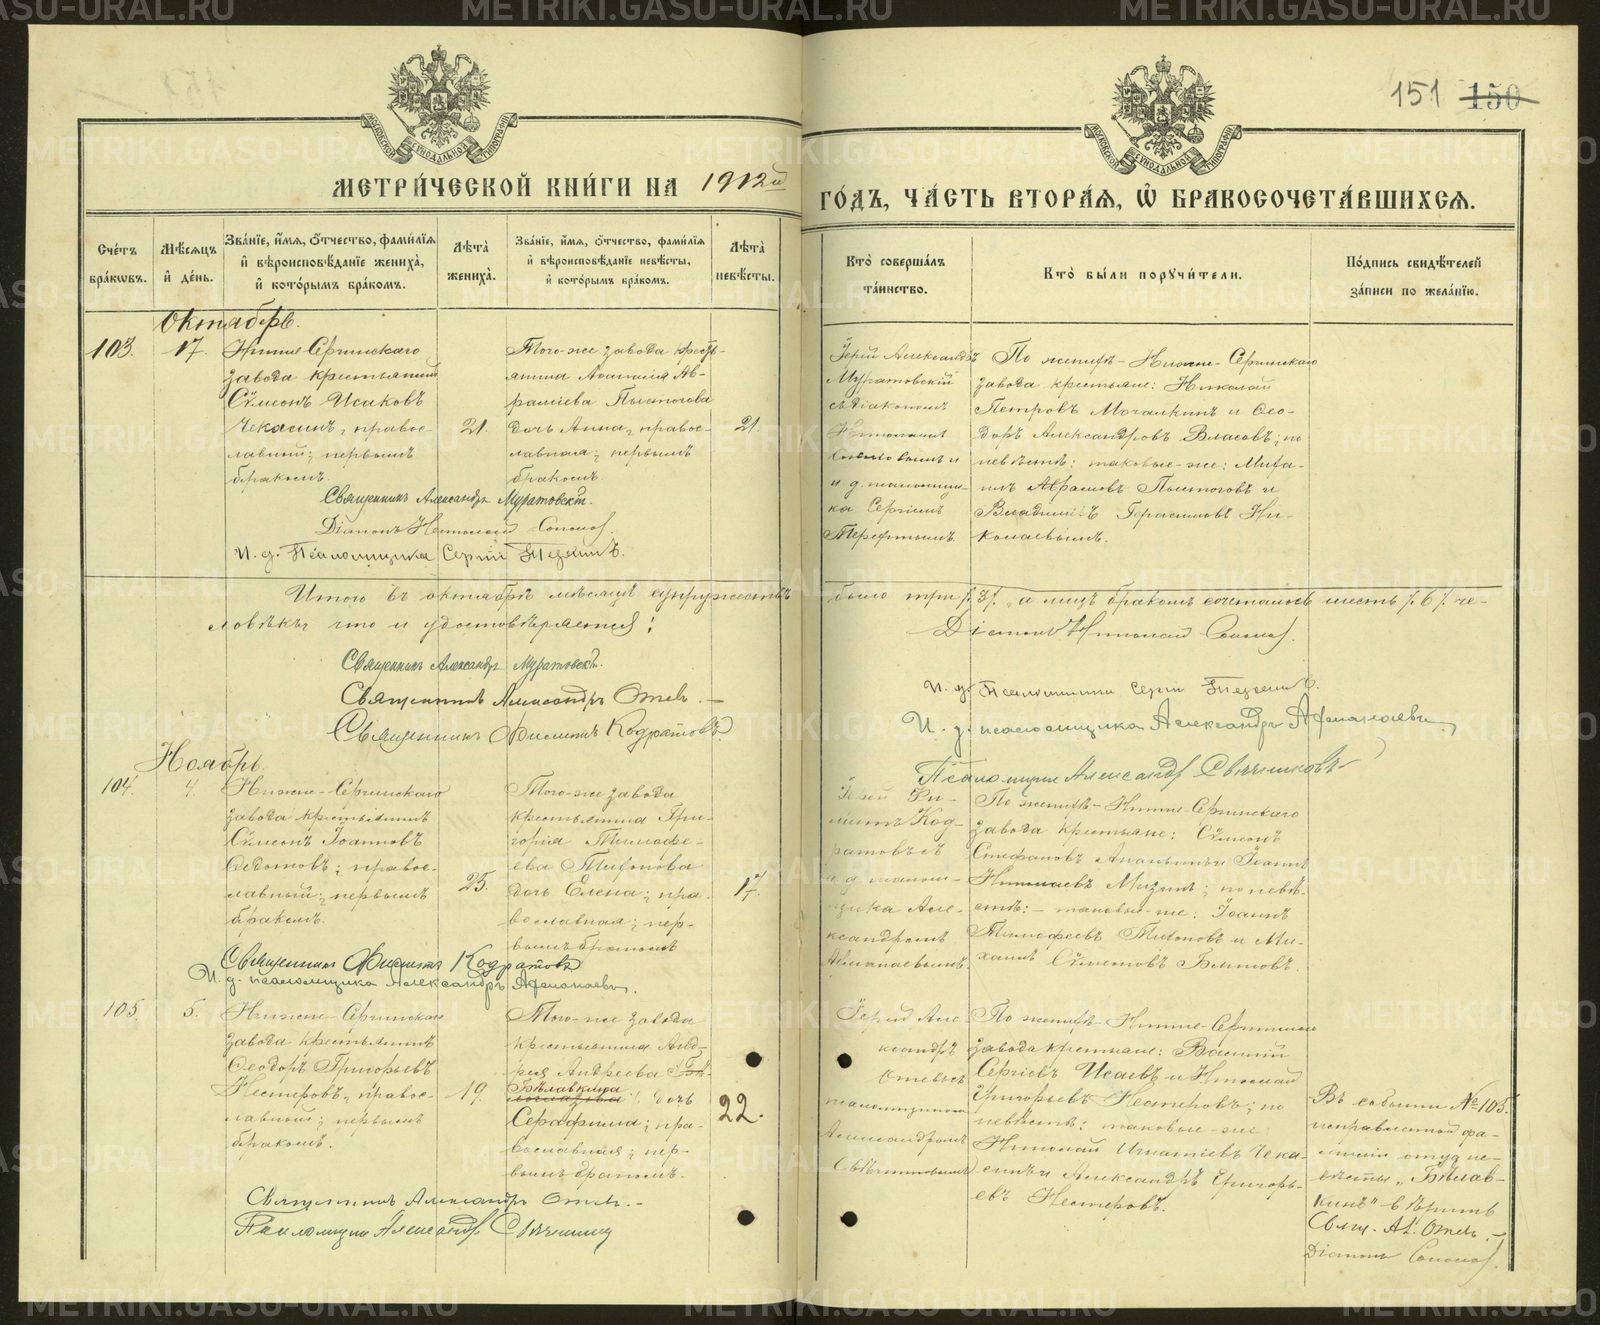 151 150
МОСКОВСКОЙ СУНОДАЛЬНОЙ ТИПОГРАФИИ
МОСКОВСКОЙ СУНОДАЛЬНОЙ ТИПОГРАФИИ
МЕТРИ́ЧЕСКОЙ КНИ́ГИ НА 1912й
ГО́ДЪ, ЧА́СТЬ ВТОРА́Я, Ѿ БРАКОСОЧЕТА́ВШИХСЯ.
Сче́тъ бра́кѡвъ.
Мѣ́сяцъ и҆ де́нь.
Зва́нїе, и҆́мя, ѻ҆́тчество, фами́лїя и҆ вѣроисповѣ́данїе жениха̀, и҆ кото́рымъ бра́комъ.
Лѣ́та̀ жениха̀.
Зва́нїе, и҆́мя, ѻ҆́тчество, фами́лїя и҆ вѣроисповѣ́данїе невѣ́сты, и҆ кото́рымъ бра́комъ.
Лѣ́та̀ невѣ́сты.
Кто̀ соверша́лъ та́инство.
Кто̀ бы́ли поручи́тели.
По́дпись свидѣ́телей за́писи по жела́нїю.
Октябрь.
103.
17.
Нижне-Сергинскаго
завода крестьянинъ
Сѵмеонъ Исаковъ
Чекасинъ, правос-
лавный; первымъ
бракомъ
21.
Того-же завода крестъ-
янина Аѳанасія Ав-
раміева Пыстогова
дочь Анна, правос-
лавная; первымъ
бракомъ
21.
Іерей Александръ
Муратовскій
съ діакономъ
и. д. псаломщи-
ка Сергіемъ
По женихѣ - Нижне-Сергинскаго
завода крестьяне: Николай
Петровъ Мочалкинъ и Ѳео-
доръ Александровъ Власовъ; по
невѣстѣ: таковые-же: Миха-
илъ Авраамовъ Пыстоговъ и
Владиміръ Герасимовъ Ни-
колаевымъ.
Священникъ Александръ Муратовскій.
Діаконъ Николай
И. д. Псаломщика Сергій
Итого въ октябрѣ мѣсяцѣ супружествъ
было три /3/, а лицъ бракомъ сочеталось шесть /6/ че-
ловѣкъ что и удостовѣряется:
Діаконъ Николай
Священникъ Александръ Муратовскій.
Священникъ Александръ
Священникъ Филиппъ Кодратовъ
И. д. Псаломщика Сергій
И. д. псаломщика Александръ Аѳанасьевъ
Псаломщикъ Александръ Свѣчниковъ
Ноябрь.
104.
4.
Нижне-Сергинскаго
завода крестьянинъ
Сѵмеонъ Іоанновъ
Ѳедотовъ; правос-
лавный; первымъ
бракомъ.
25.
Того-же завода
крестьянина Гри-
горія Тимоѳе-
ева Тихонова
дочь Елена; пра-
вославная; пер-
вымъ бракомъ
17.
Іерей Фи-
липпъ Код-
ратовъ съ
и. д. псалом-
щика Але-
ксандромъ
Аѳанасьевымъ.
По женихѣ - Нижне-Сергинскаго
завода крестьяне: Сѵмеонъ
Стефановъ Ананьинъ и Іоаннъ
Николаевъ Мизинъ; по невѣ-
стѣ: - таковые-же: Іоаннъ
Тимоѳеевъ Тихоновъ и Ми-
хаилъ Сѵмеоновъ
Священникъ Филиппъ Кодратовъ
И. д. псаломщика Александръ Аѳанасьевъ.
105.
5.
Нижне-Сергинскаго
завода крестьянинъ
Ѳеодоръ Григорьевъ
Нестеровъ, правос-
лавный; первымъ
бракомъ.
19.
Того-же завода
крестьянина Анд-
рея Андреева
Бѣлавкина дочь
Серафима; пра-
вославная; пер-
вымъ бракомъ.
22.
Іерей Але-
ксандръ
псаломщикомъ
Александромъ
Свѣчниковымъ
По женихѣ - Нижне-Сергинскаго
завода крестьяне: Василій
Сергіевъ Исаевъ и Николай
Григорьевъ Нестеровъ; по
невѣстѣ: таковые-же:
Николай Игнатіевъ Чека-
синъ и Александръ Григорь-
евъ Нестеровъ.
Въ событіи № 105.
исправленной фа-
миліи отца не-
вѣсты „Бѣлав-
кинъ" вѣрить
Свящ. Ал.
Діаконъ
Священникъ Александръ
Псаломщикъ Александръ Свѣчниковъ
METRIKI.GASO-URAL.RU